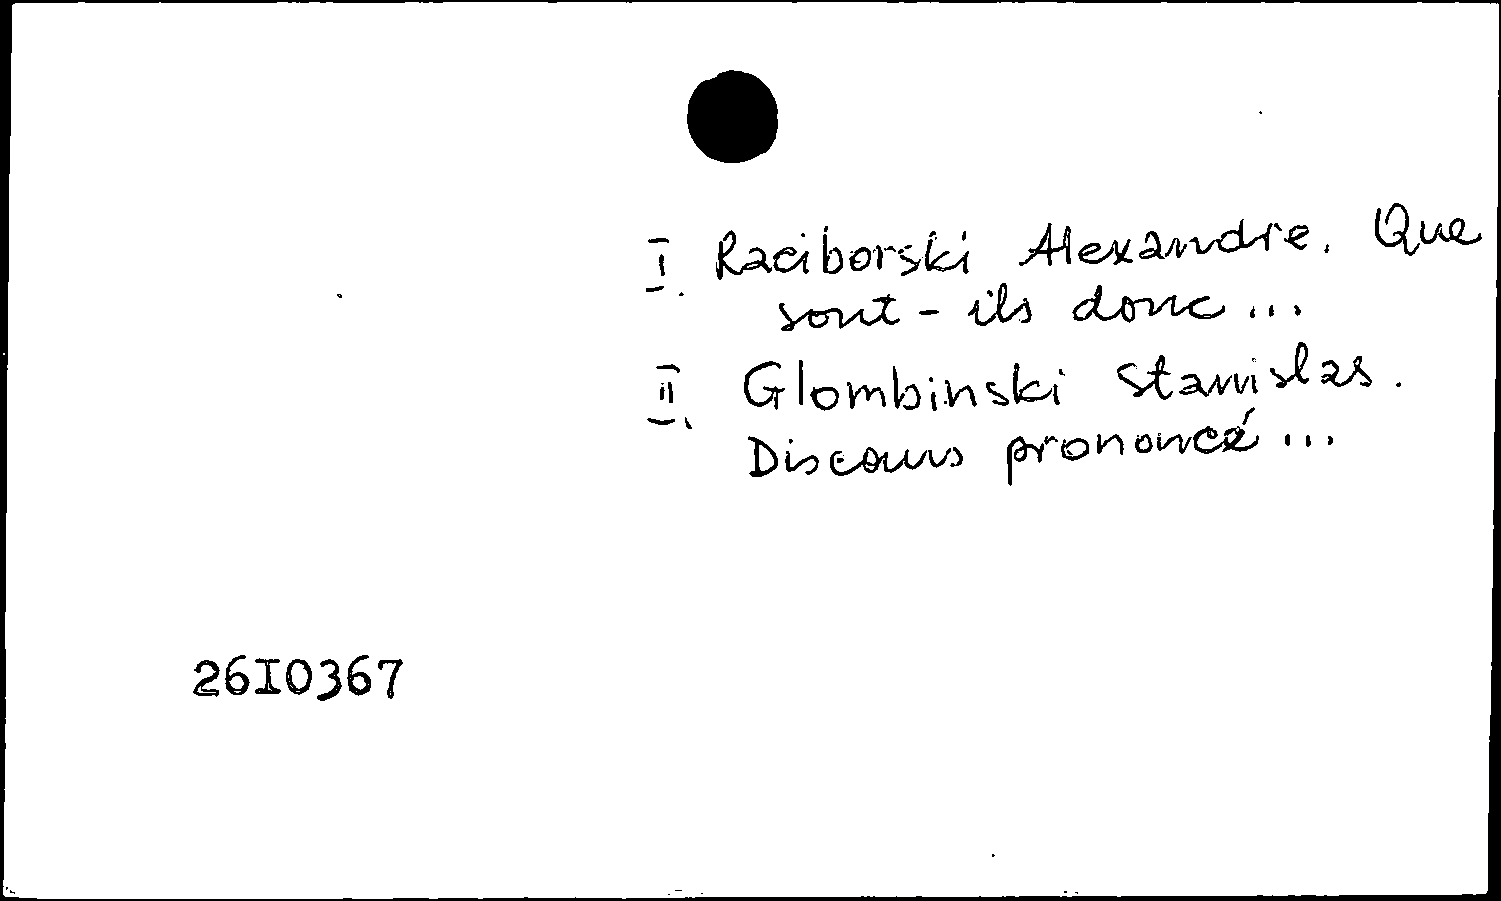 I. Raciborski Alexandre. Que
sont-ils donc...
II. Glombinski Stanislas.
Discours prononcé...
26I0367